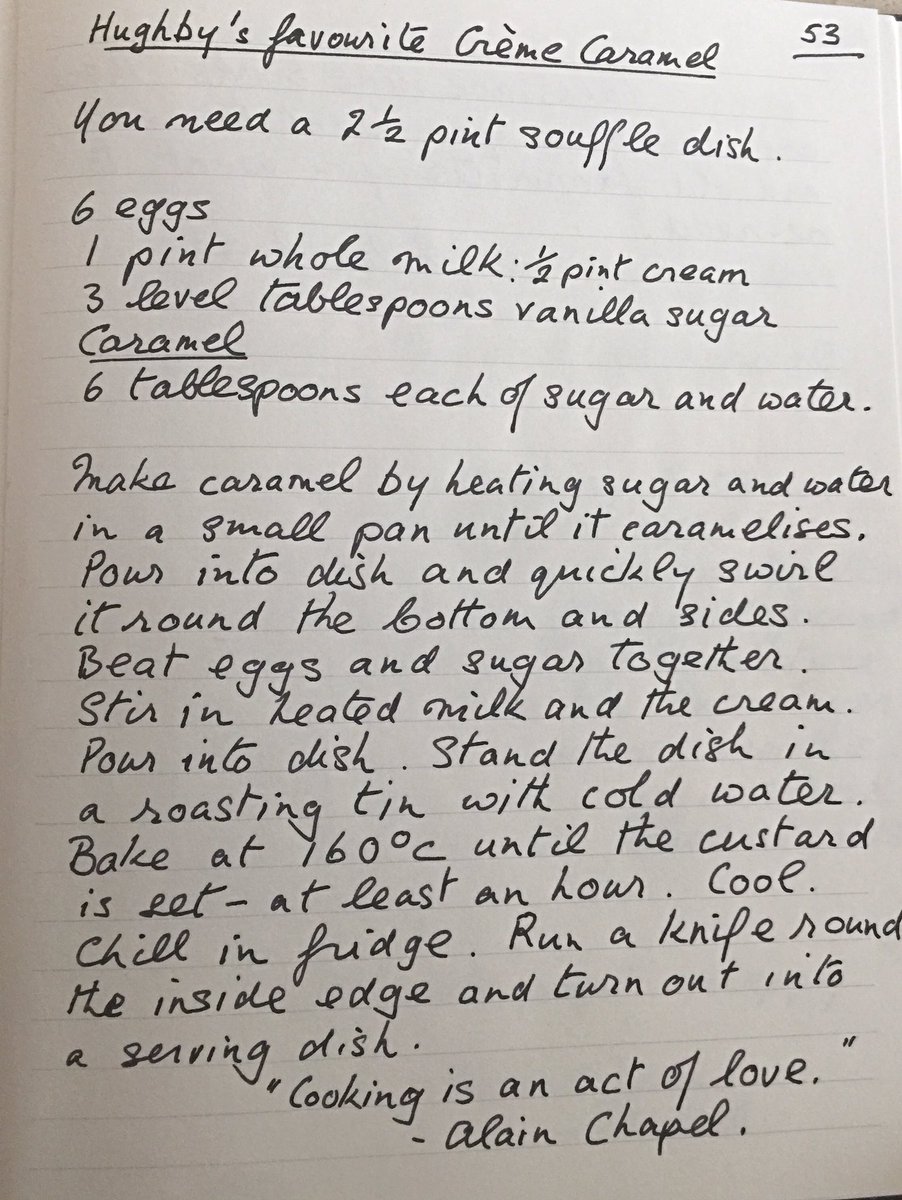 Hughby's favourite Crème Caramel 53
You need a 2½ pint souffle dish.
6 eggs
1 pint whole milk: ½ pint cream
3 level tablespoons vanilla sugar
Caramel
6 tablespoons each of sugar and water.
Make caramel by heating sugar and water
in a small pan until it caramelises.
Pour into dish and quickly swirl
it round the bottom and sides.
Beat eggs and sugar together.
Stir in heated milk and the cream.
Pour into dish. Stand the dish in
a roasting tin with cold water.
Bake at 160°c until the custard
is set - at least an hour. Cool.
Chill in fridge. Run a knife round
the inside edge and turn out into
a serving dish.
"Cooking is an act of love."
- Alain Chapel.